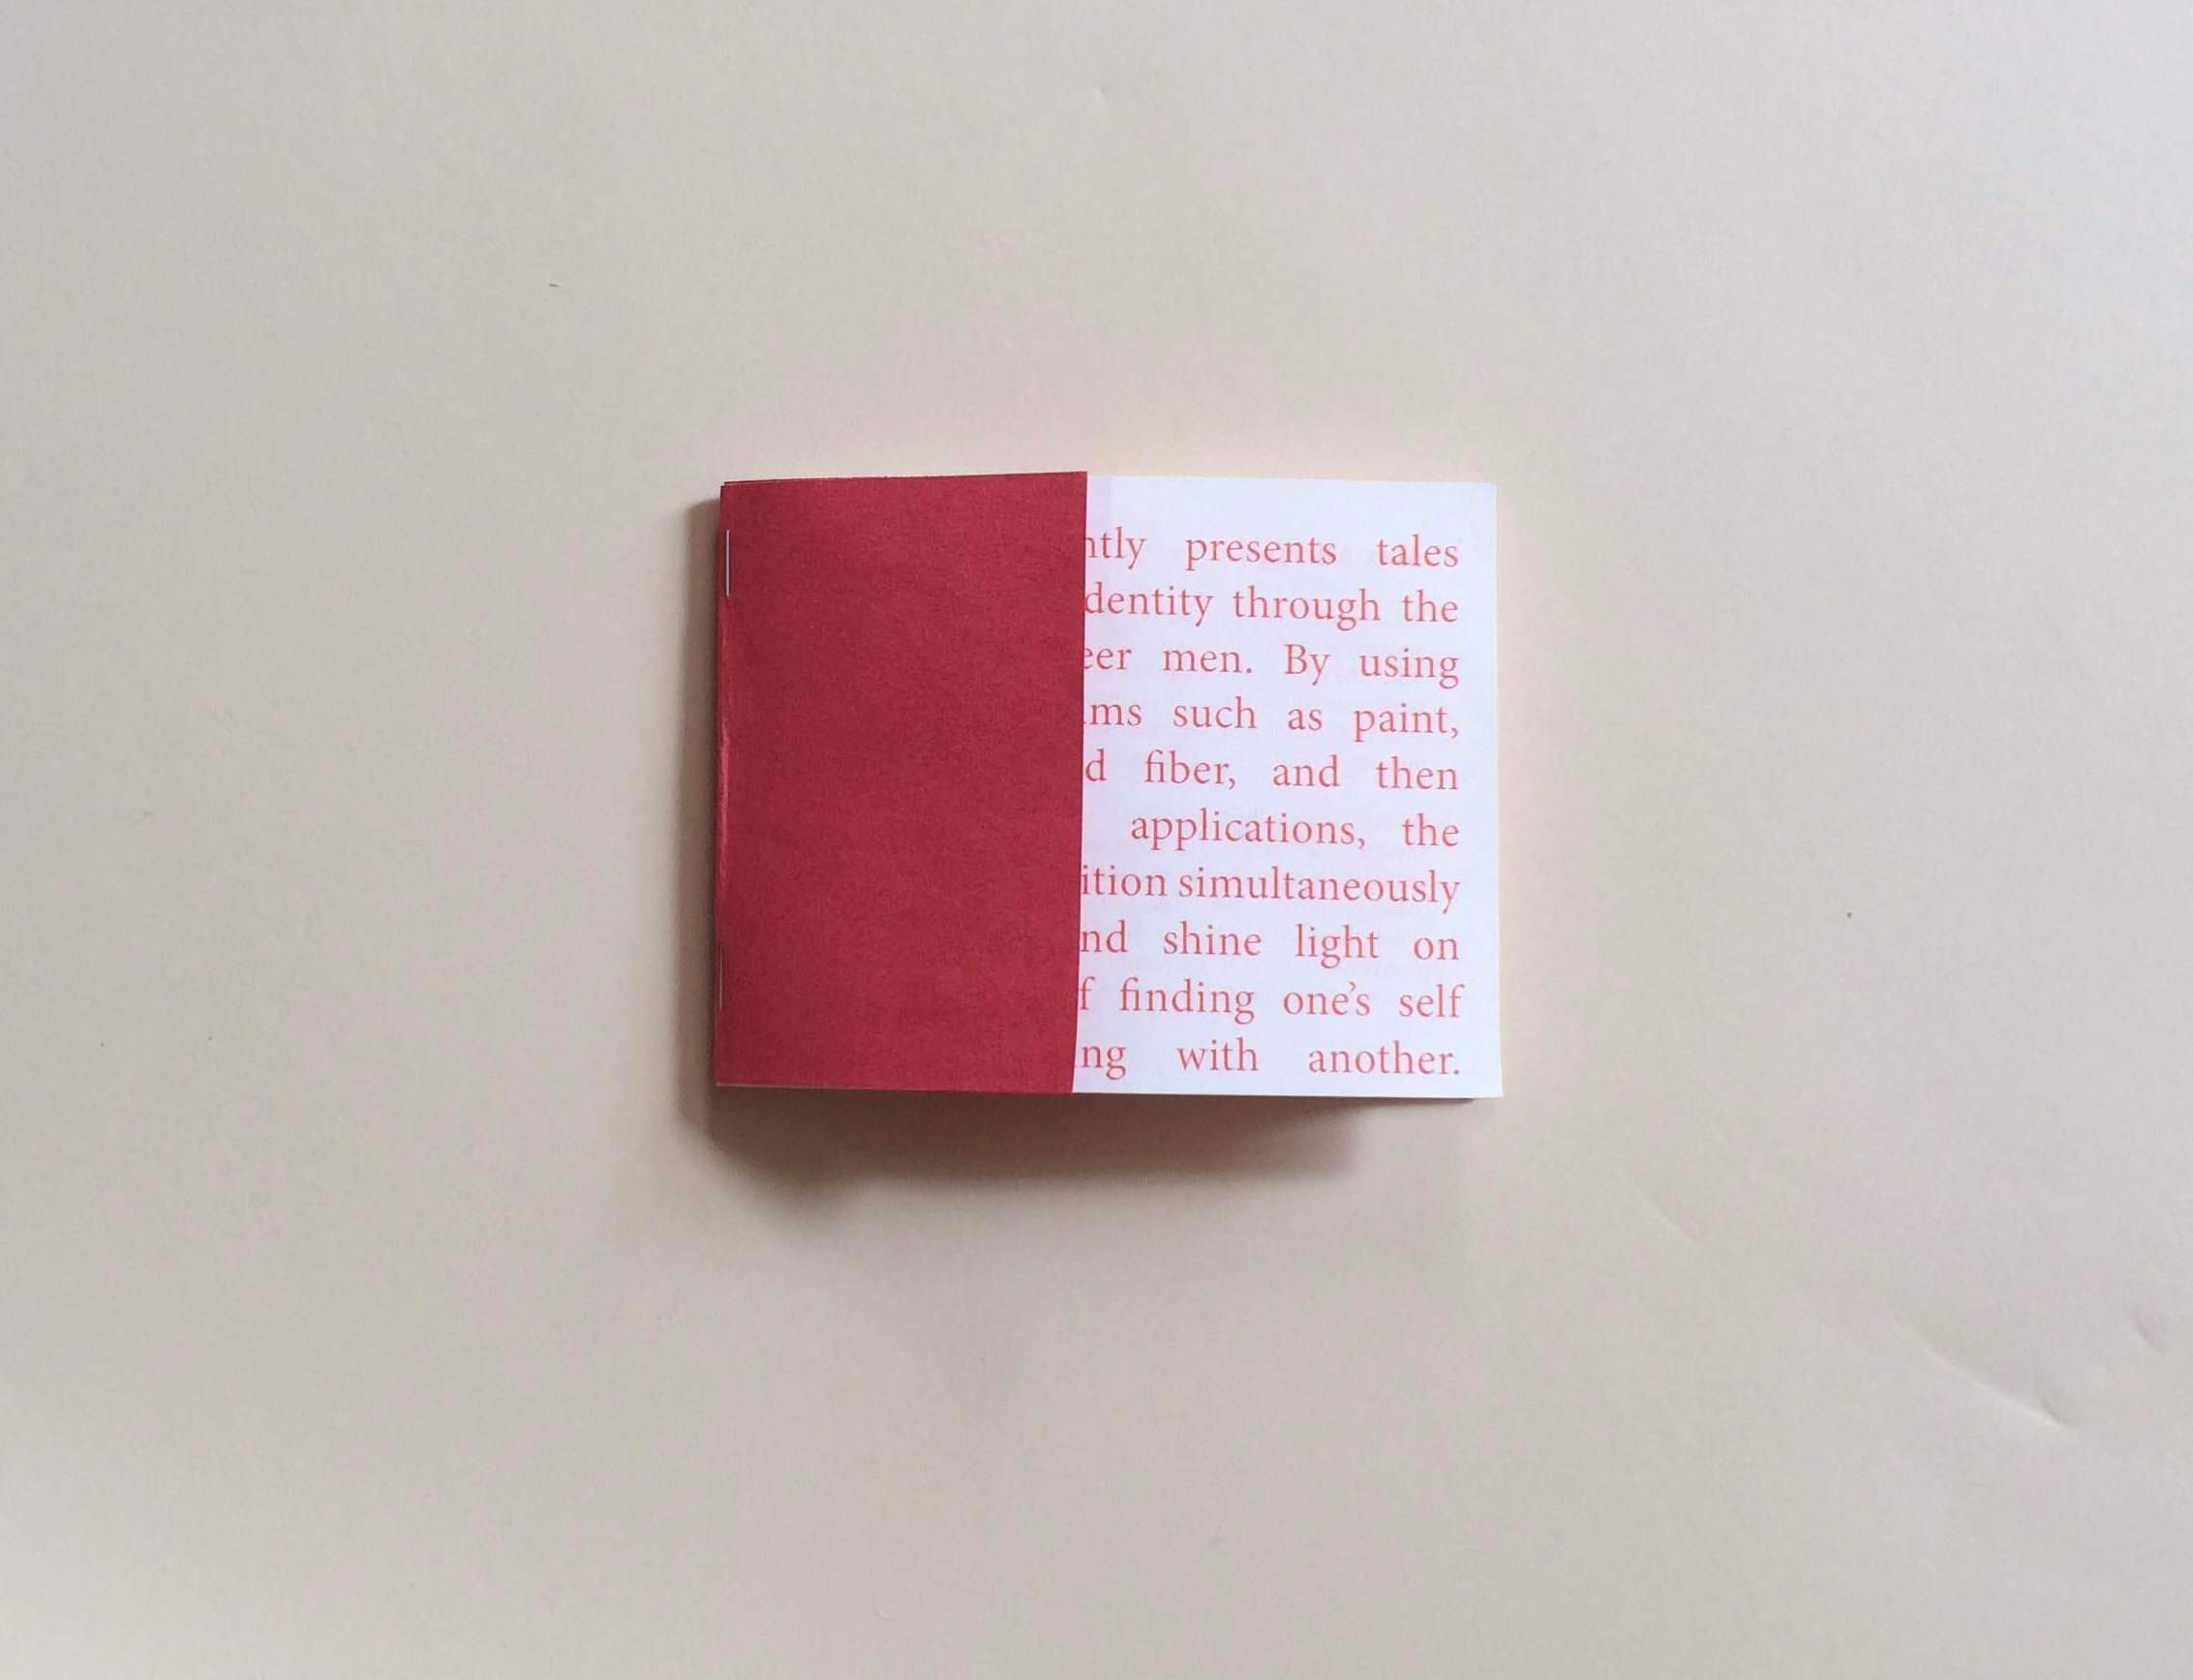 ntly presents tales
dentity through the
eer men. By using
ms such as paint,
d fiber, and then
applications, the
ition simultaneously
nd shine light on
f finding one’s self
ng with another.